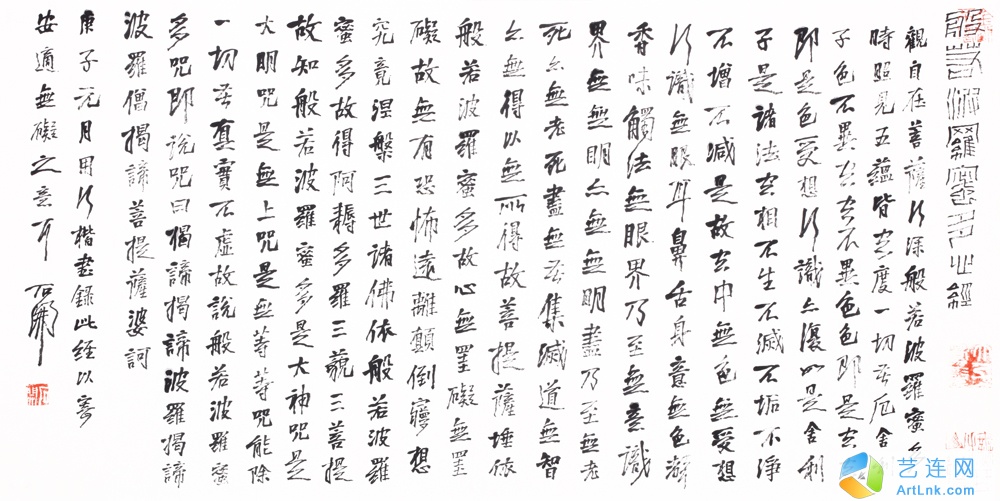 般若波羅蜜多心經
觀自在菩薩行深般若波羅蜜多
時照見五蘊皆空度一切苦厄舍
子色不異空空不異色色即是空
即是色受想行識亦復如是舍利
子是諸法空相不生不滅不垢不淨
不增不減是故空中無色無受想
行識無眼耳鼻舌身意無色聲
香味觸法無眼界乃至無意識
界無無明亦無無明盡乃至無老
死亦無老死盡無苦集滅道無智
亦無得以無所得故菩提薩埵依
般若波羅蜜多故心無罣礙無罣
礙故無有恐怖遠離顛倒夢想
究竟涅槃三世諸佛依般若波羅
蜜多故得阿耨多羅三藐三菩提
故知般若波羅蜜多是大神咒是
大明咒是無上咒是無等等咒能除
一切苦真實不虛故說般若波羅蜜
多咒即說咒曰揭諦揭諦波羅揭諦
波羅僧揭諦菩提薩婆訶
庚子元月用行楷書錄此經以寄
安適無礙之意耳
艺连网
ArtLnk.com